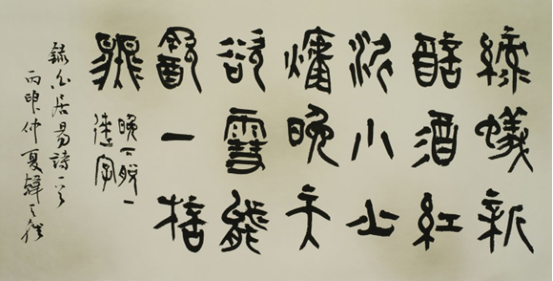 綠蟻新
醅酒紅
泥小火
爐晚天
欲雪能
飲一桮
無
晚下脫一
來字
錄白居易詩一首
丙申仲夏